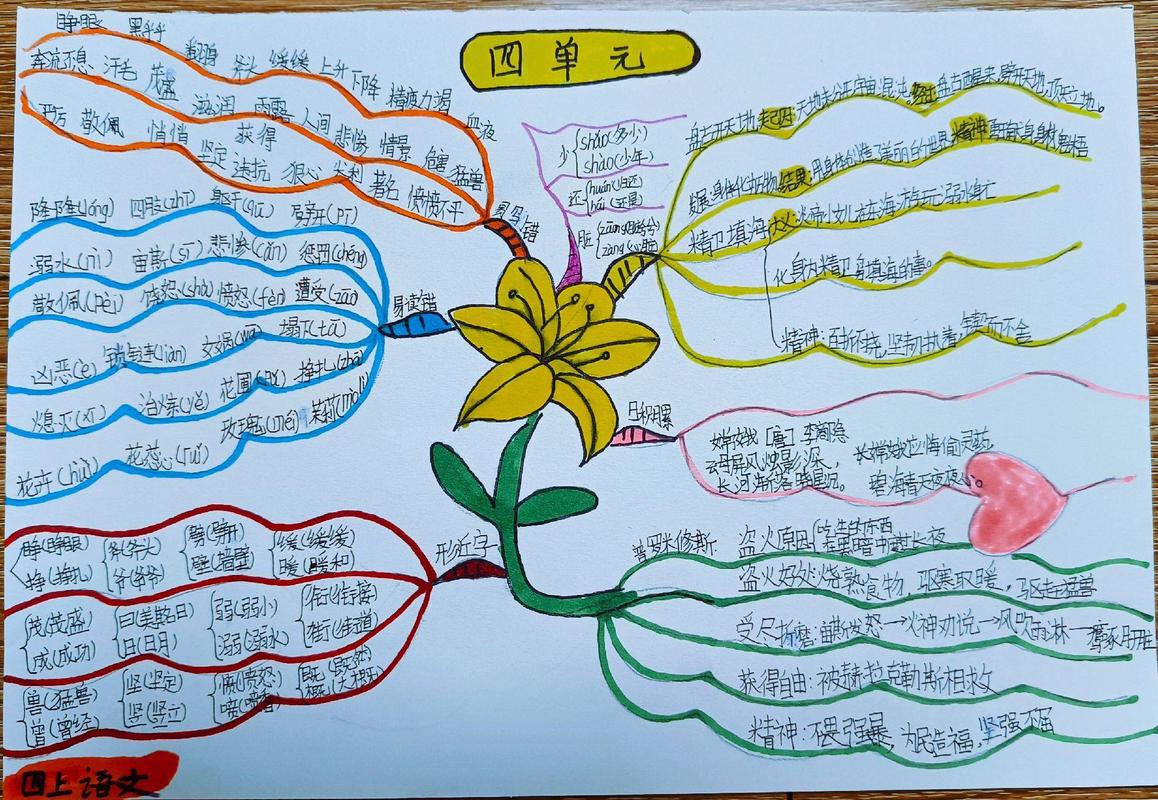 四单元
睁眼 黑乎乎
奔流不息 汗毛 茂盛 翻滚 斧头 缓缓 上升 下降 精疲力竭 血液
滋润 雨露 人间 悲惨 情景 危害 猛兽
严厉 敬佩 悄悄 获得
坚定 违抗 狠心 尖利 著名 愤愤不平
易写错
隆隆(lóng) 四肢(zhī) 躯干(qū) 劈开(pī)
溺水(nì) 宙斯(sī) 悲惨(cǎn) 惩罚(chéng)
敬佩(pèi) 饶恕(shù) 愤怒(fèn) 遭受(zāo)
凶恶(è) 锁链(liàn) 女娲(wā) 塌下(tā)
熄灭(xī) 冶炼(yě) 花圃(pǔ) 挣扎(zhá)
玫瑰(méi) 茉莉(mò lì)
花卉(huì) 花蕊(ruǐ)
易读错
少 shǎo(多少)
shào(少年)
还 huán(归还)
hái(还是)
脏 zàng(内脏)
zāng(心脏)
盘古开天地 起因:天地未分开,宇宙混沌。经过:盘古醒来,劈开天地,顶天立地。
发展:身体化万物 结果:用身体创造了美丽的世界 精神:勇敢献身
精卫填海 大火:炎帝小女儿在东海游玩,溺水身亡
化身为精卫鸟填海的事。
精神:百折不挠,坚韧执着,锲而不舍
日积月累
嫦娥 [唐] 李商隐
云母屏风烛影深,
长河渐落晓星沉。
嫦娥应悔偷灵药,
碧海青天夜夜心。
形近字
睁(睁眼) 斧(斧头) 劈(劈开) 缓(缓缓)
挣(挣扎) 爷(爷爷) 壁(墙壁) 暖(暖和)
茂(茂盛) 曰(美其名曰) 弱(弱小) 衔(衔接)
成(成功) 日(日月) 溺(溺水) 街(街道)
兽(猛兽) 坚(坚定) 愤(愤怒) 既(既然)
曾(曾经) 竖(竖立) 喷(喷香) 概(大概)
普罗米修斯: 盗火原因 吃生的东西
在黑暗中度长夜
盗火好处:烧熟食物,驱寒取暖,驱走猛兽
受尽折磨:宙斯发怒→火神劝说→风吹雨淋—鹫啄肝脏
获得自由:被赫拉克勒斯相救
精神:不畏强暴,为民造福,坚强不屈
四上语文